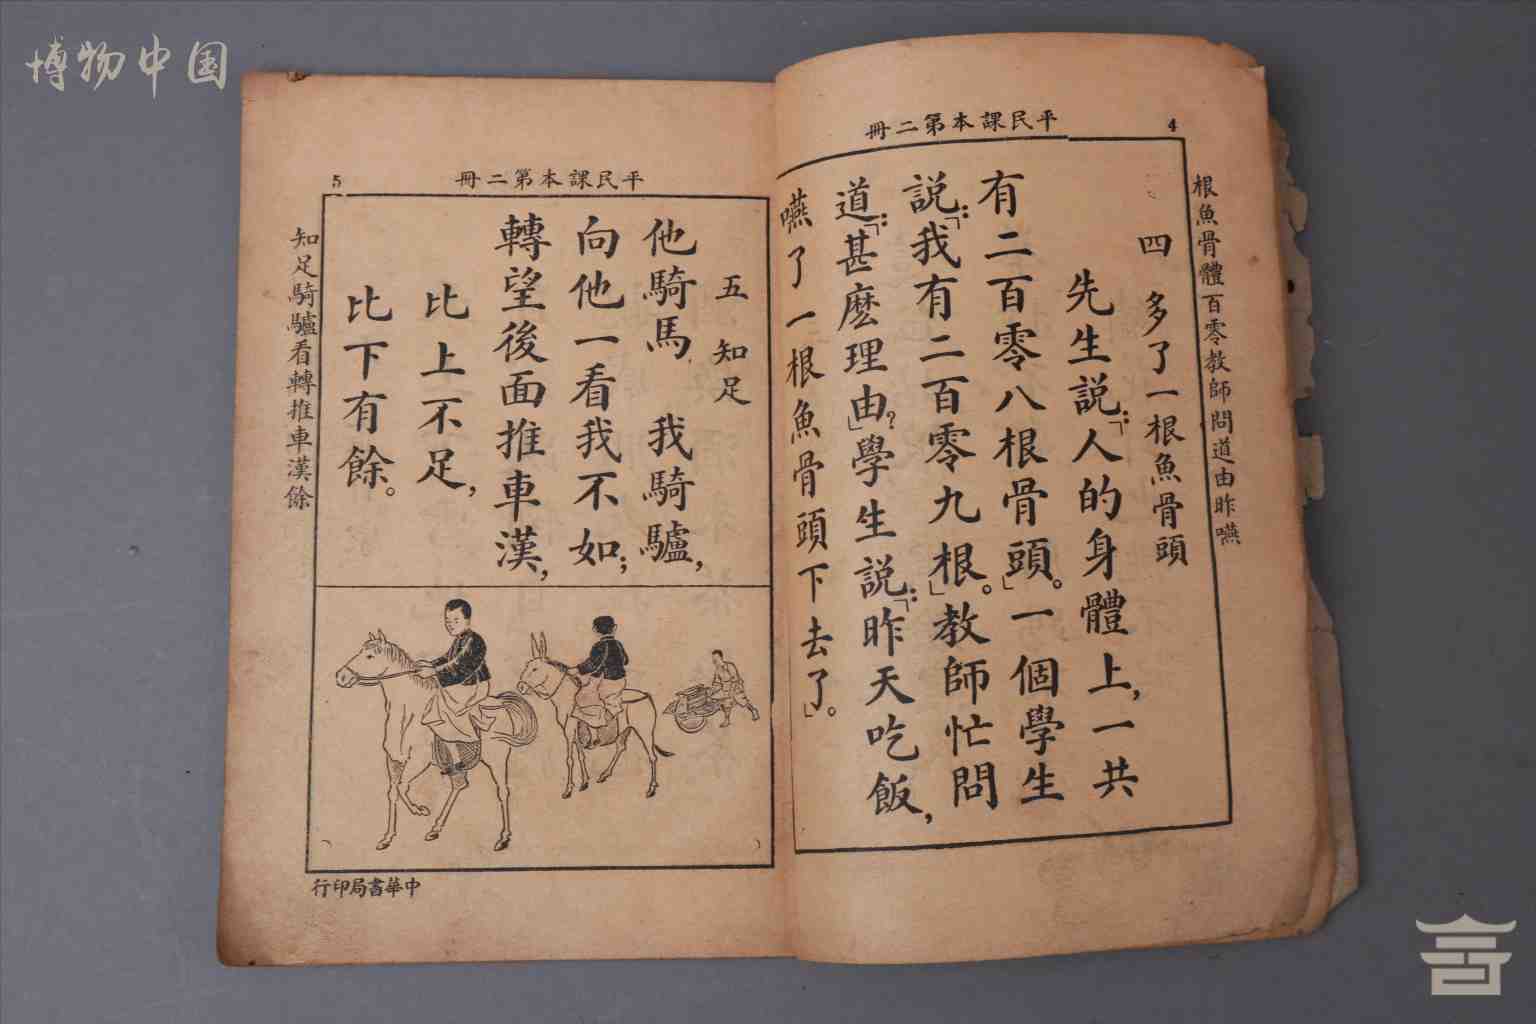 博物中国
平民課本第二冊
4
根魚骨體百零教師問道由昨嚥
四 多了一根魚骨頭
先生説:「人的身體上,一共
有二百零八根骨頭。」一個學生
説:「我有二百零九根。」教師忙問
道:「甚麼理由?」學生説:「昨天吃飯,
嚥了一根魚骨頭下去了。」
平民課本第二冊
5
五 知足
他騎馬 我騎驢,
向他一看我不如;
轉望後面推車漢,
比上不足,
比下有餘。
知足騎驢看轉推車漢餘
中華書局印行